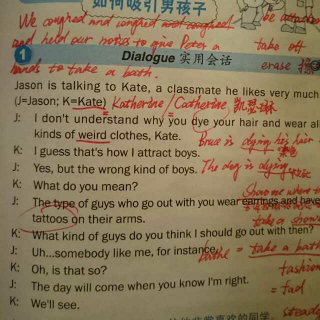 如何吸引男孩子
We coughed and coughed
and held our noses to give Peter a
hints to take a bath.
be attractive
take off
erase
1 Dialogue 实用会话
Jason is talking to Kate, a classmate he likes very much.
(J=Jason; K=Kate) Katherine / Catherine, 凯瑟琳
J: I don't understand why you dye your hair and wear all
kinds of weird clothes, Kate.
Bruce is dying his hair.
K: I guess that's how I attract boys.
The dog is dying.
J: Yes, but the wrong kind of boys.
K: What do you mean?
J: The type of guys who go out with you wear earrings and have
tattoos on their arms.
take a shower
K: What kind of guys do you think I should go out with then?
J: Uh...somebody like me, for instance.
bathe = take a bath
K: Oh, is that so?
fashion
J: The day will come when you know I'm right.
= fad
K: We'll see.
steady